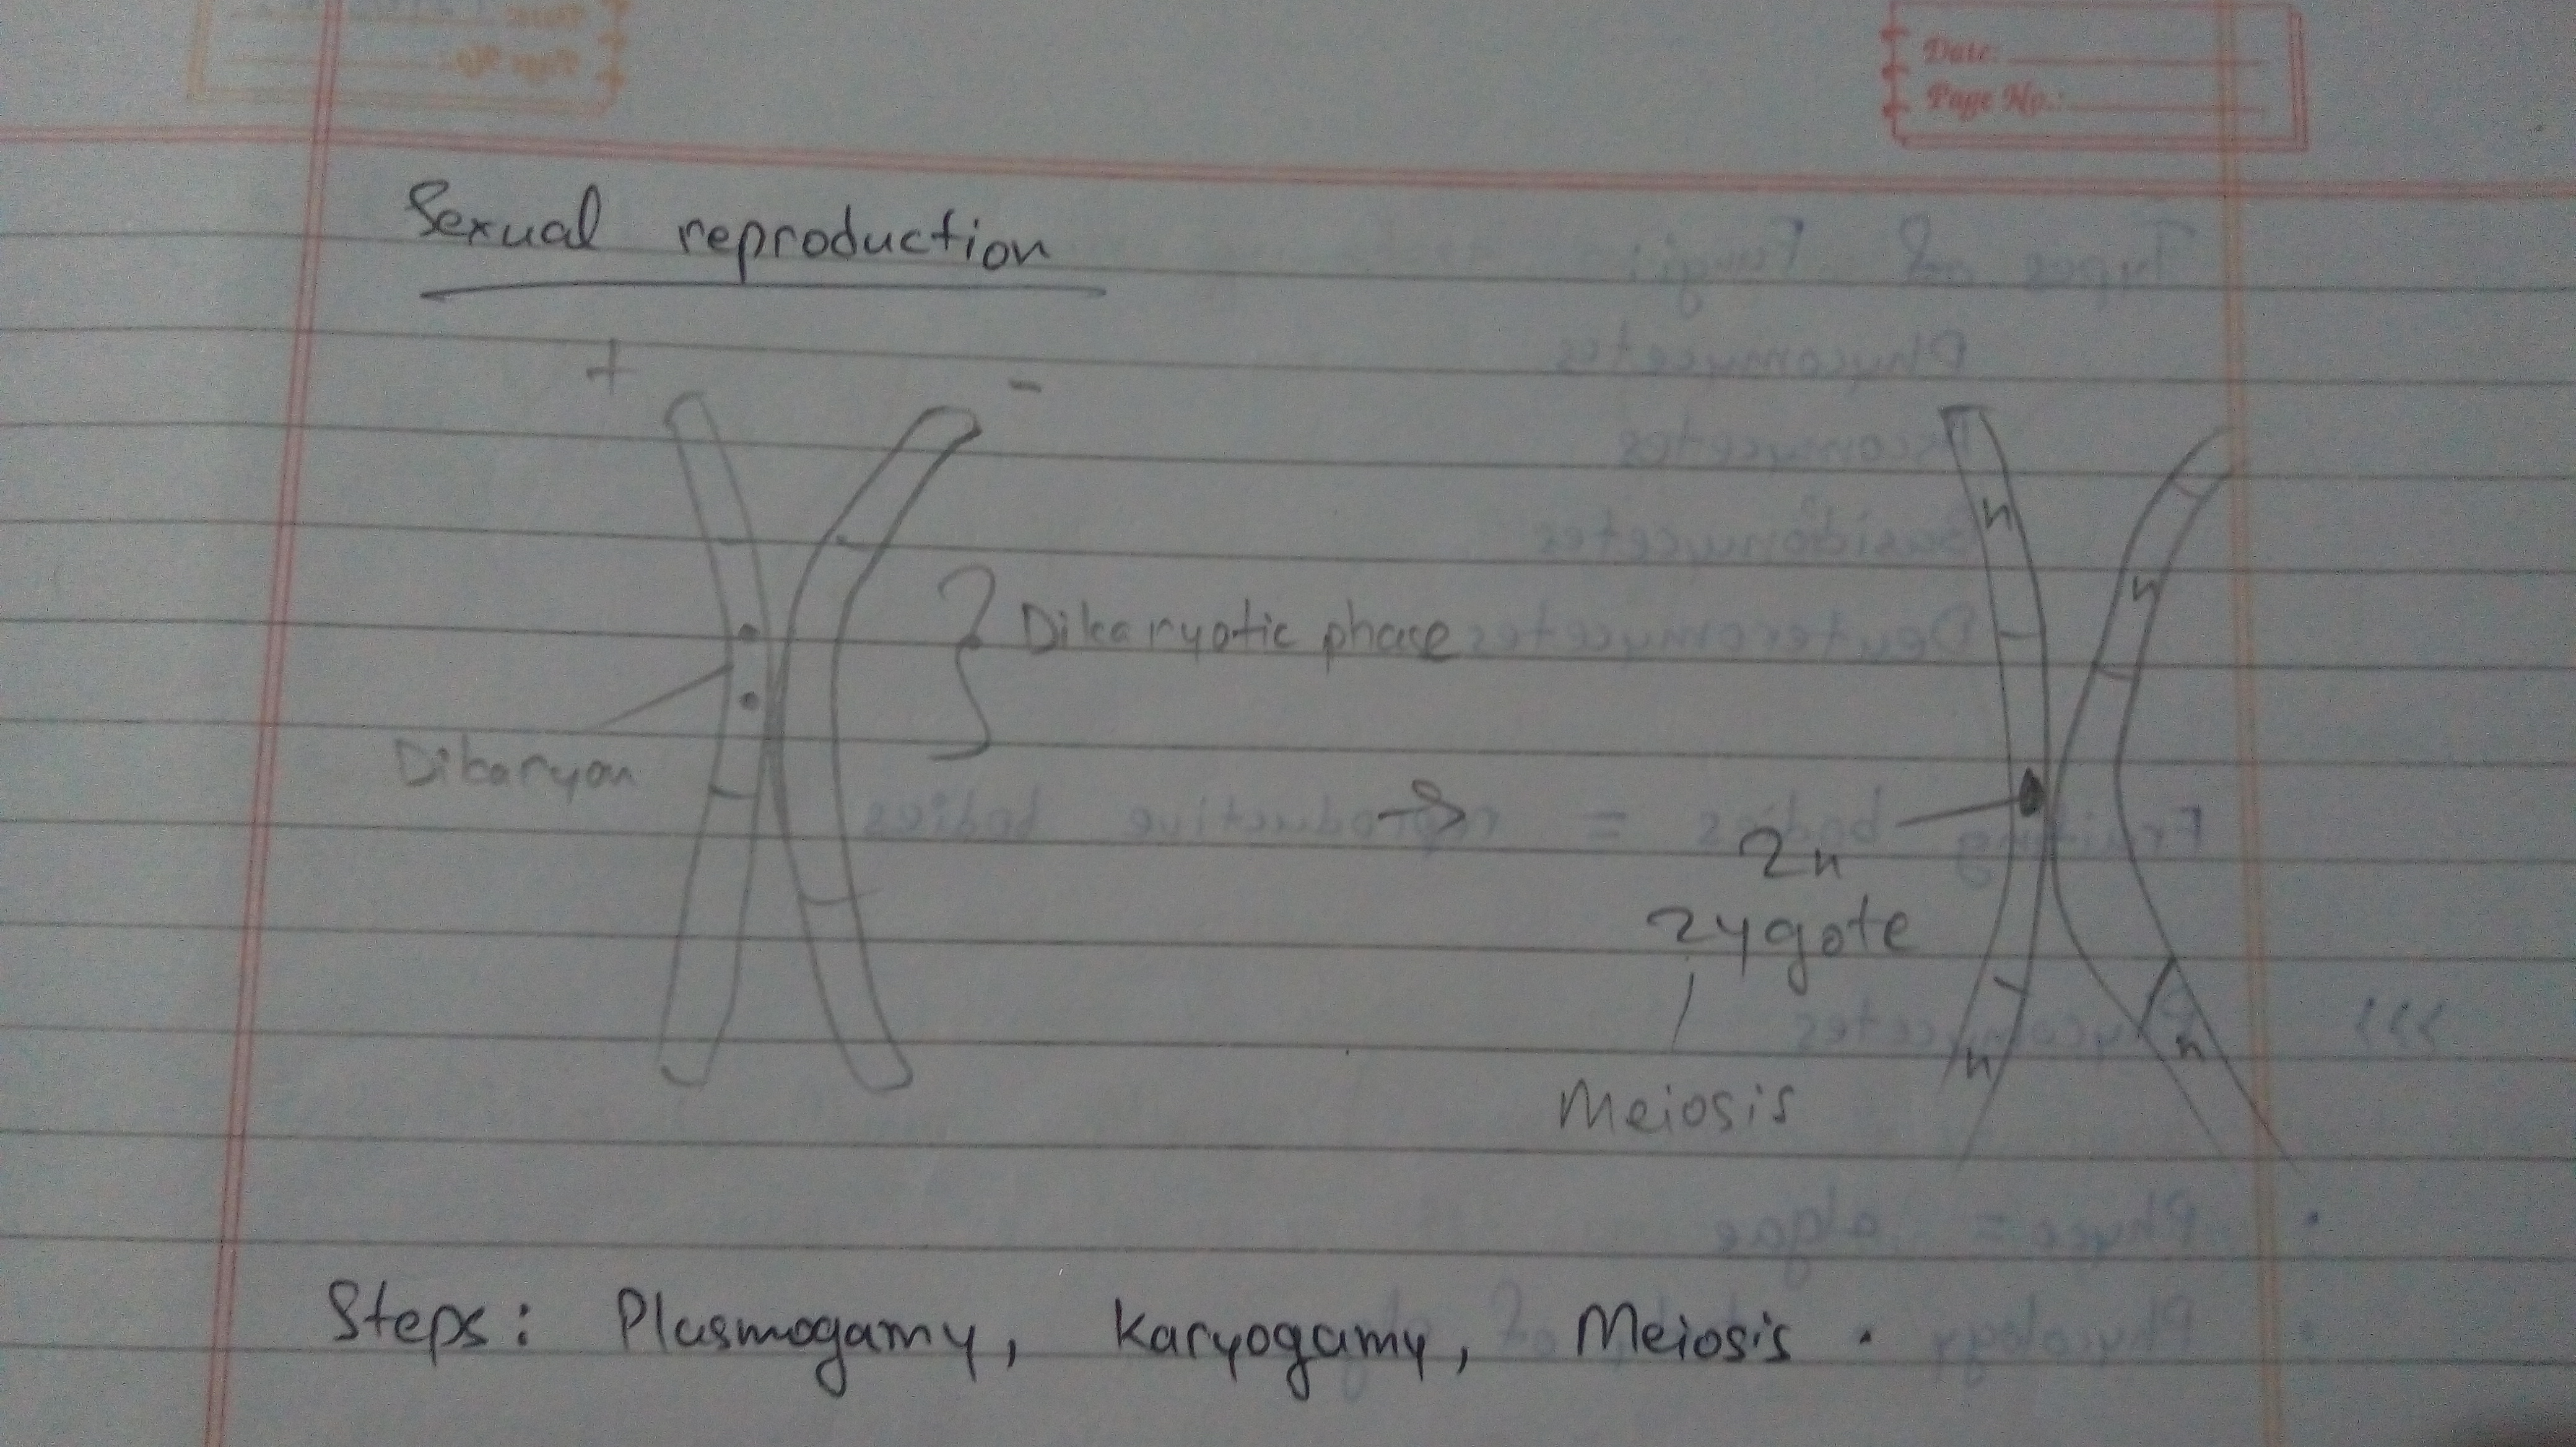 Date:
Page No.:
Sexual reproduction
+ -
n
n
Dikaryotic phase
Dikaryon
2n
zygote
n
n
Meiosis
Steps: Plasmogamy, Karyogamy, Meiosis.